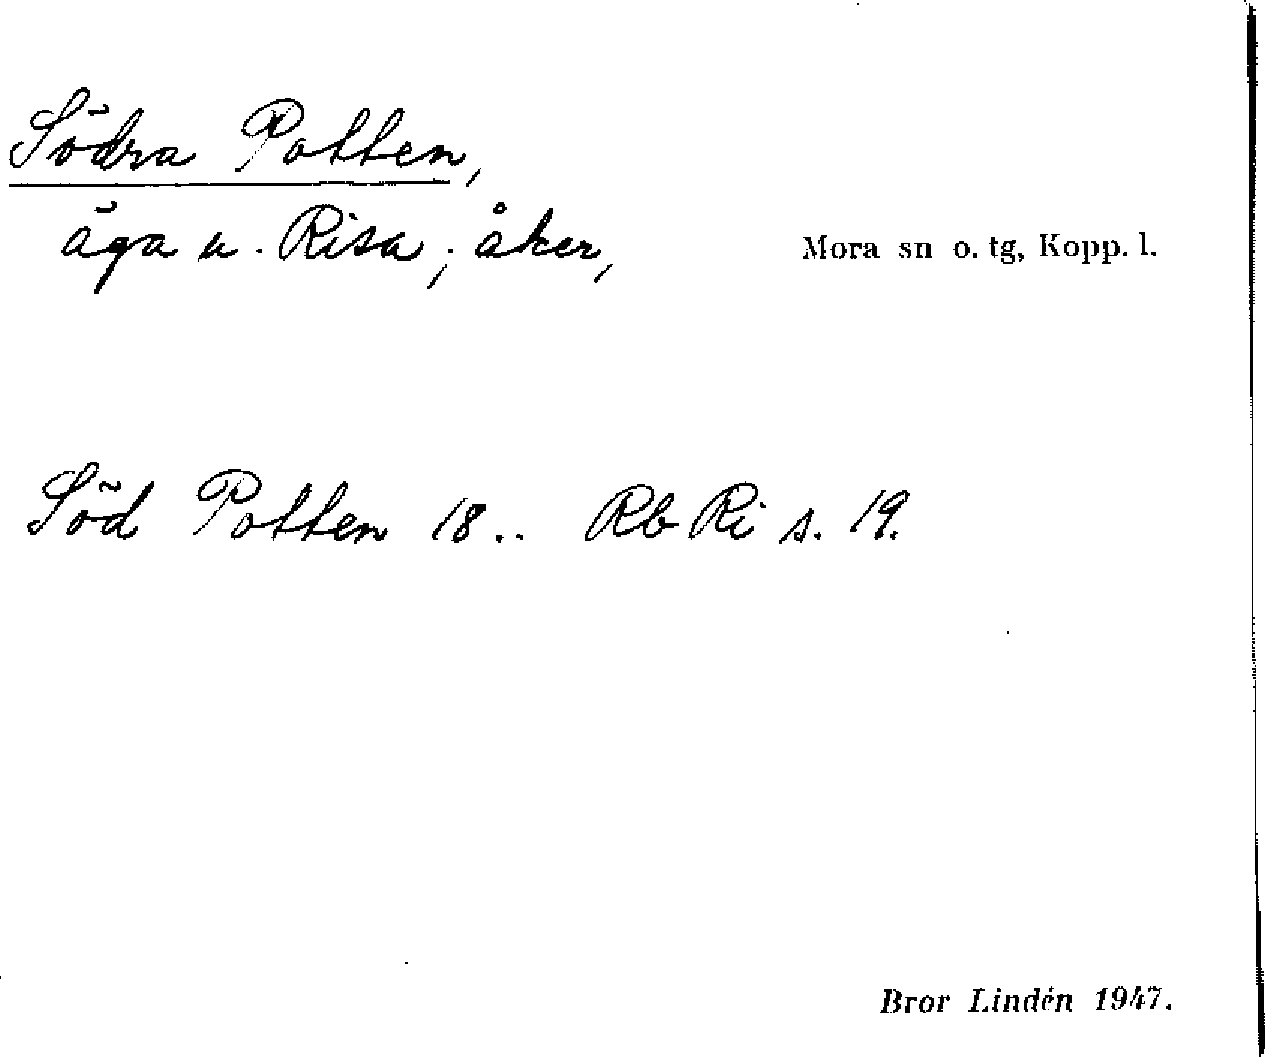 Södra Potten,
äga u. Risa; åker,
Mora sn o. tg, Kopp. l.
Söd Potten 18.. Rb Ri s. 19.
Bror Lindén 1947.